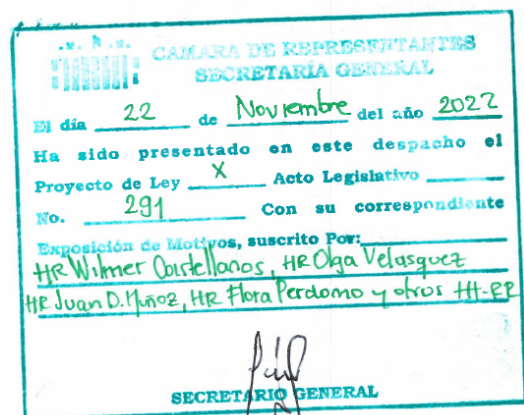 CAMARA DE REPRESENTANTES
SECRETARÍA GENERAL
El día 22 de Noviembre del año 2022
Ha sido presentado en este despacho el
Proyecto de Ley X Acto Legislativo
No. 291 Con su correspondiente
Exposición de Motivos, suscrito Por:
HR Wilmer Castellanos, HR Olga Velasquez
HR Juan D. Muñoz, HR Flora Perdomo y otros HH-RR
SECRETARIO GENERAL